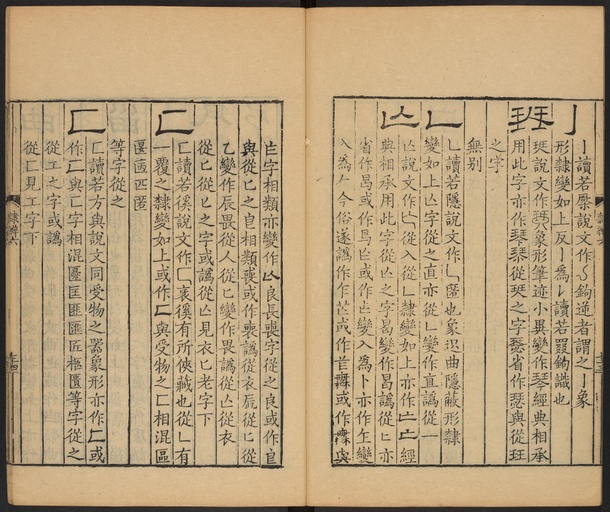 亅
亅讀若橜說文作亅鉤逆者謂之亅象
形隸變如上反亅爲𠄌讀若罬鉤識也
珡
珡說文作珡象形筆迹小異變作琴經典相承
用此字亦作琹琴從珡之字瑟省作瑟與從玨
之字
無別
乚
乚讀若隱說文作乚匿也象迟曲隱蔽形隸
變如上乚字從之直亦從乚變作直譌從一
亾
亾說文作亾從入從乚隸變如上亦作亡亡經
典相承用此字從亾之字曷變作曷譌從匕亦
省作曷或作曷或作亡變入爲卜亦作乍變
入爲𠂉今俗遂譌作乍芒或作芒無或作無與
亡字相類亦變作亾良長喪字從之良或作良
與從匕之皀相類喪或作喪譌從衣展從匕從
匕變作辰畏從人從匕變作畏譌從亾從衣
從匕從匕之字或譌從亾見衣匕老字下
匸
匸讀若徯說文作匸衺徯有所俠藏也從乚有
一覆之隸變如上或作匚與受物之匚相混區
匽匧匹匿
等字從之
匚
匚讀若方與說文同受物之器象形亦作匚或
作匸與匸字相混匱匡匪匯匠柩匱等字從之
從工之字或譌
從匚見工字下
隸辨六